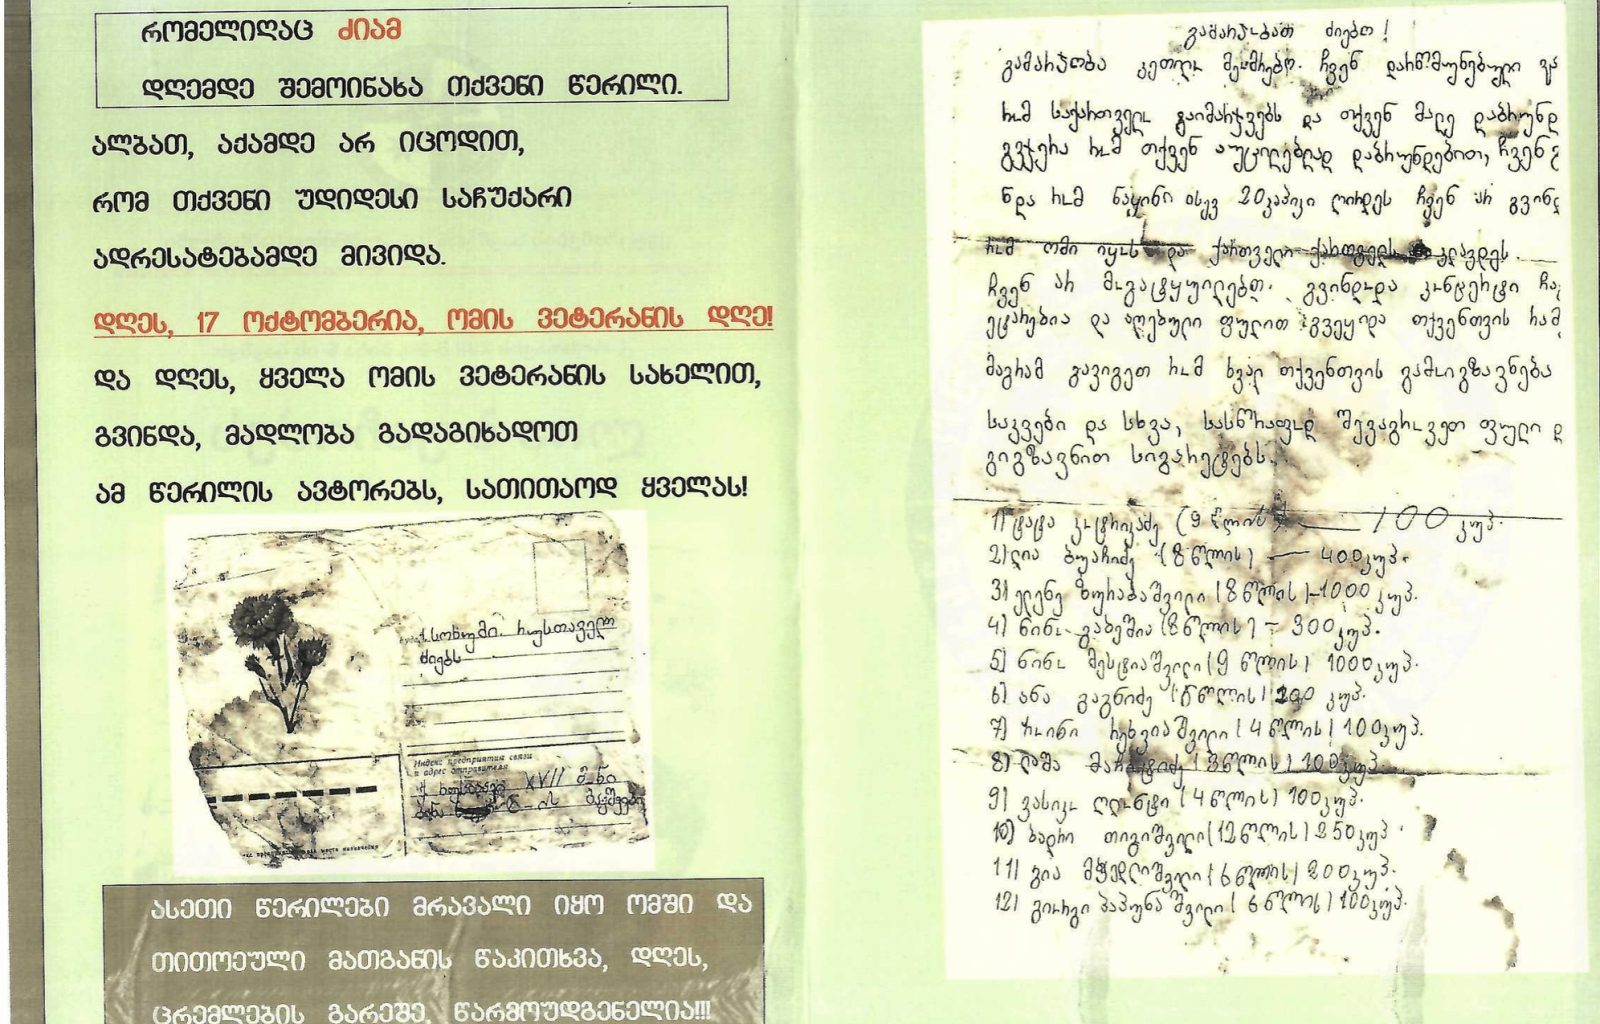 რომელიღაც ძიამ
დღემდე შემოინახა თქვენი წერილი.
ალბათ, აქამდე არ იცოდით,
რომ თქვენი უდიდესი საჩუქარი
ადრესატებამდე მივიდა.
დღეს, 17 ოქტომბერია, ომის ვეტერანის დღე!
და დღეს, ყველა ომის ვეტერანის სახელით,
გვინდა, მადლობა გადაგიხადოთ
ამ წერილის ავტორებს, სათითაოდ ყველას!
ქ სოხუმი. რუსთაველ
ძიებს
Индекс предприятия связи
и адрес отправителя
ქ რუსთავი XVII მ-ნი
ბინა 8-ის ბავშვები
ასეთი წერილები მრავალი იყო ომში და
თითოეული მათგანის წაკითხვა, დღეს,
ცრემლების გარეშე, წარმოუდგენელია!!!
გამარჯობათ ძიებო!
გამარჯობა კეთილო მეომრებო. ჩვენ დარწმუნებული ვა
რომ საქართველო გაიმარჯვებს და თქვენ მალე დაბრუნდ
გვჯერა რომ თქვენ აუცილებლად დაბრუნდებით, ჩვენ გ
ნდა რომ ნაყინი ისევ 20 კაპიკი ღირდეს ჩვენ არ გვინდ
რომ ომი იყოს და ქართველი ქართველს კლავდეს.
ჩვენ არ მოგატყუილებთ. გვინდოდა კონცერტი ჩა
ეტარებია და აღებული ფულით გვეყიდა თქვენთვის რამ
მაგრამ გავიგეთ რომ ხვალ თქვენთვის გამოიგზავნება
საკვები და სხვა, სასწრაფოდ შევაგროვეთ ფული დ
გიგზავნით სიგარეტებს.
1) ტატა კოტრიკაძე (9 წლის) — 100 კუპ.
2) ლია ბუაჩიძე (8 წლის) — 400 კუპ.
3) ელენე ზურაბაშვილი (8 წლის) — 1000 კუპ.
4) ნინო გაბეშია (8 წლის) — 300 კუპ.
5) ნინო მესტიაშვილი (9 წლის) 1000 კუპ.
6) ანა გაგნიძე (6 წლის) 200 კუპ.
7) ჯონი რეხვიაშვილი (4 წლის) 100 კუპ.
8) ლაშა (3 წლის) 100 კუპ.
9) ვასიკო ღლონტი (4 წლის) 100 კუპ.
10) ბადრი თივიშვილი (12 წლის) 250 კუპ.
11) გია მჭედლიშვილი (6 წლის) 200 კუპ.
12) გიორგი პაპუნაშვილი (6 წლის) 100 კუპ.